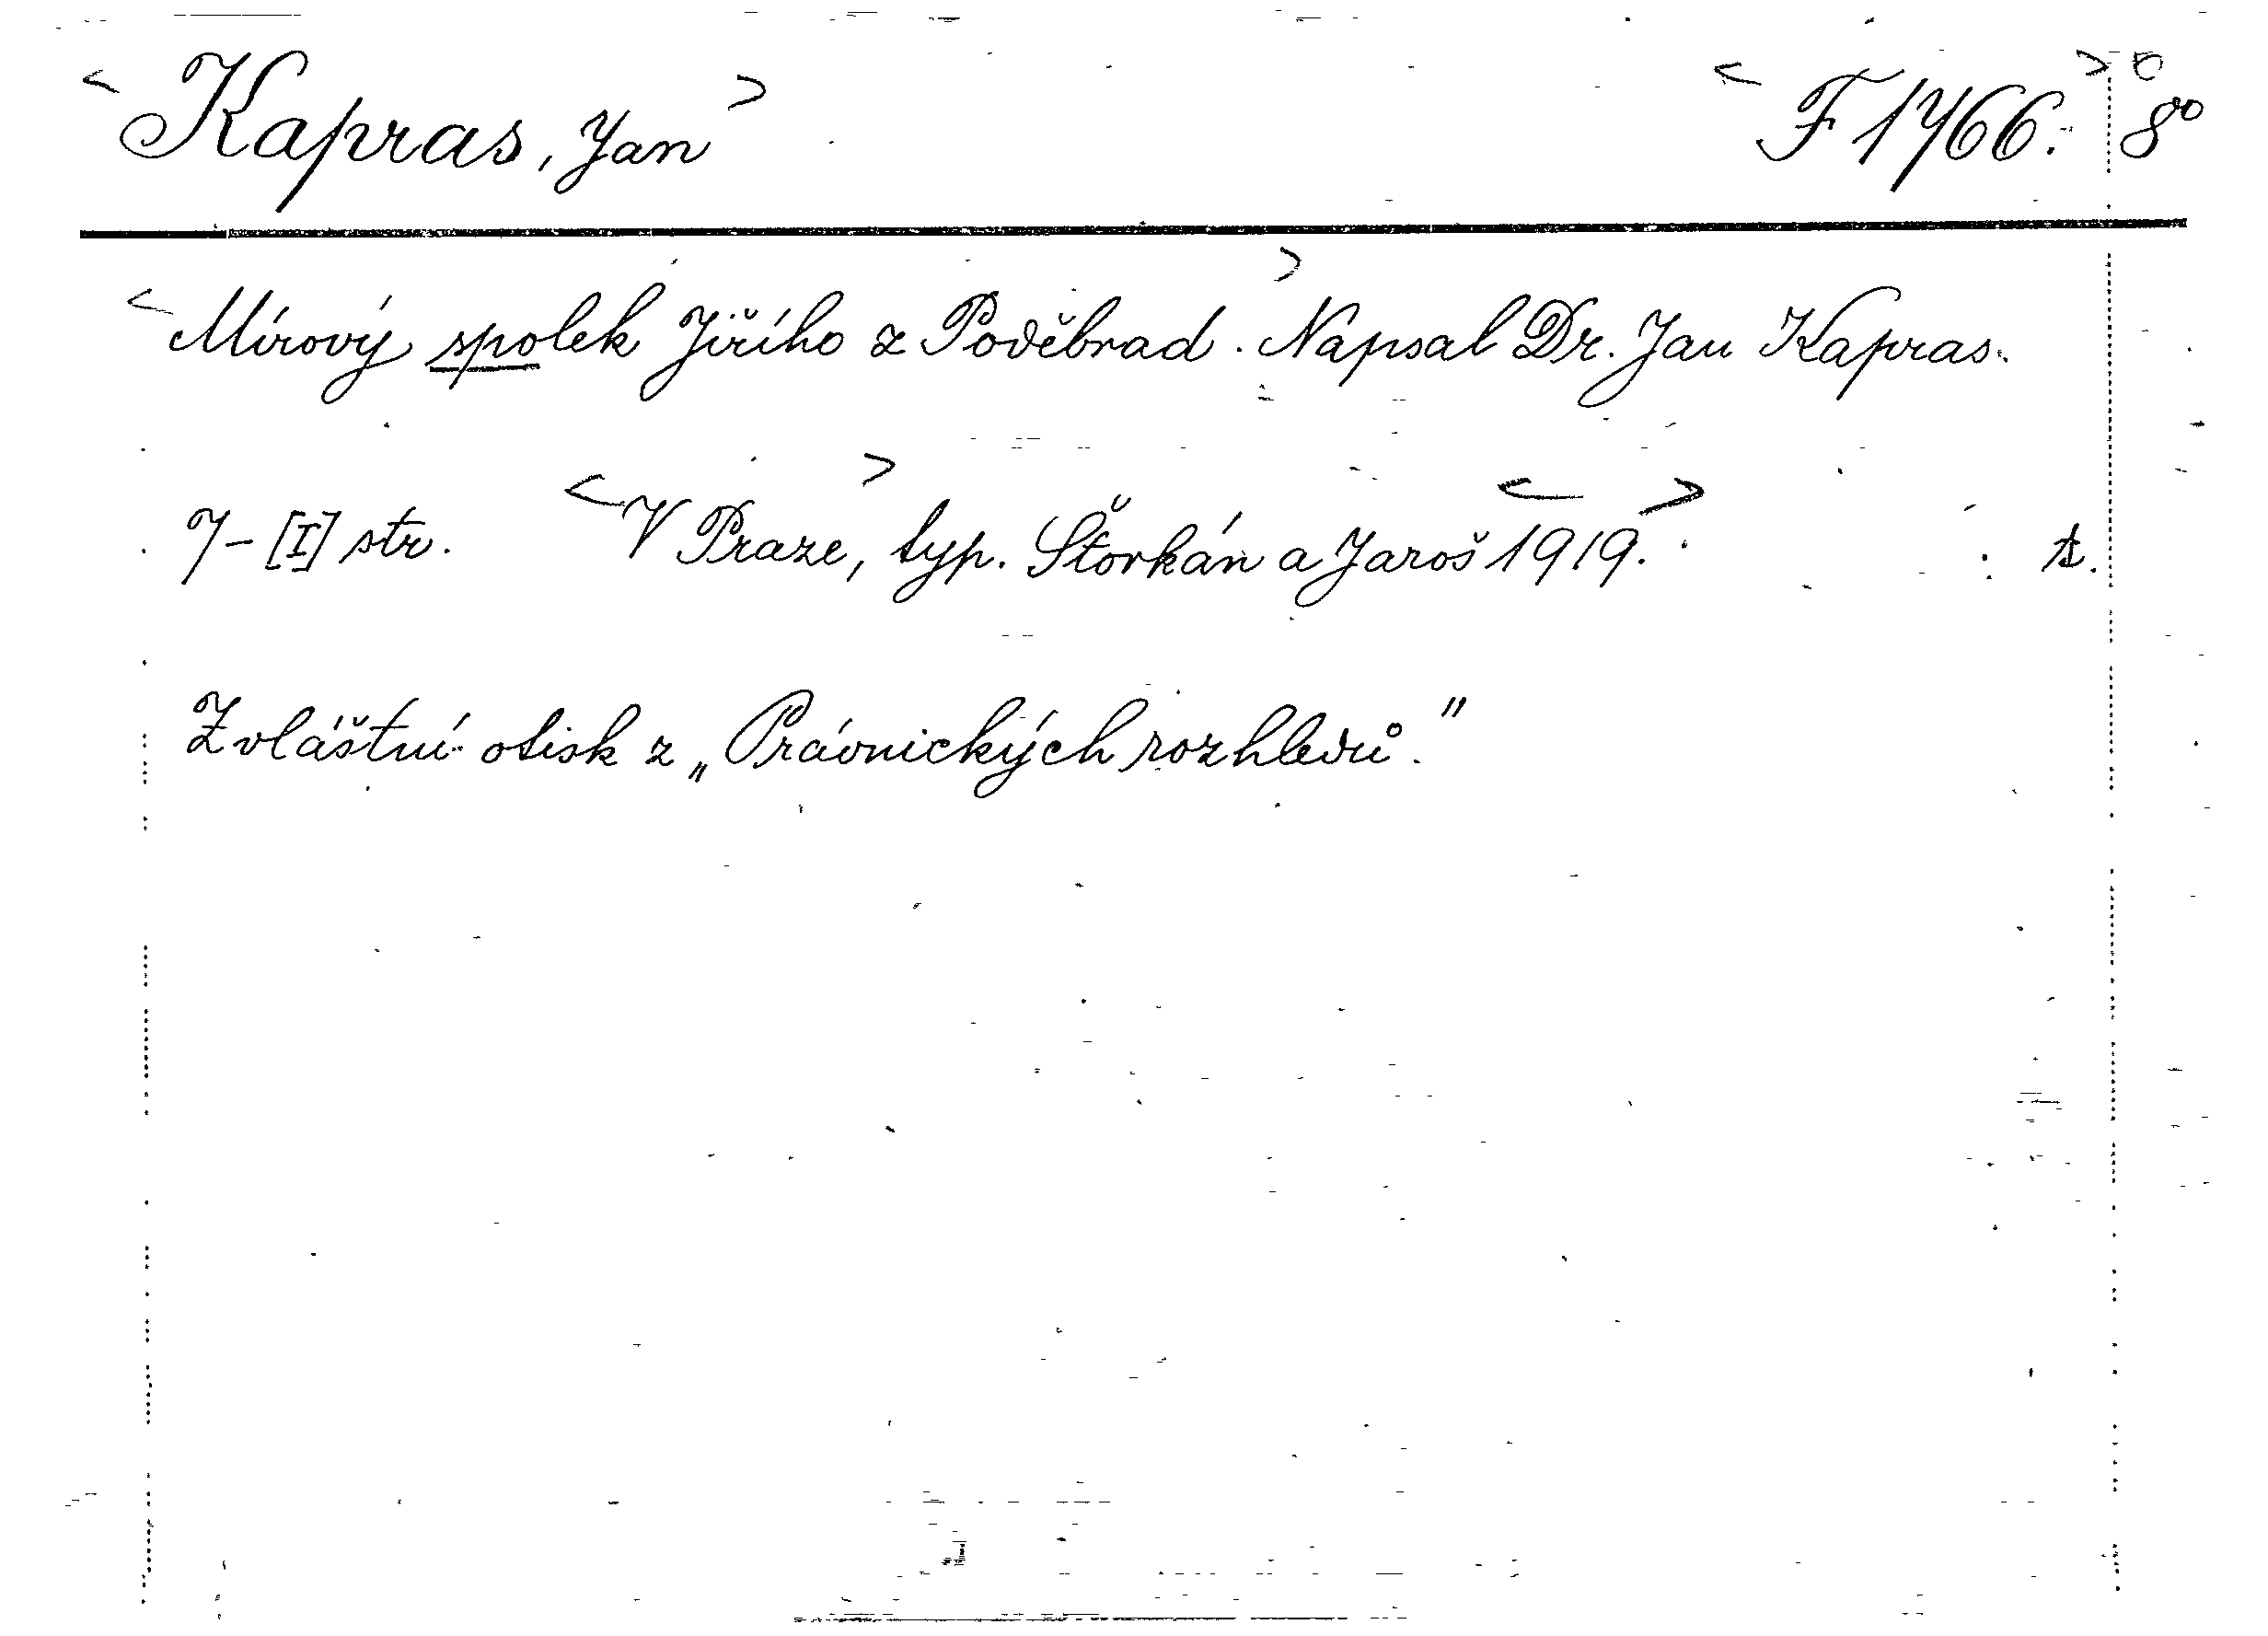 <Kapras, Jan> <F 1766.> 8°
<Mírový spolek Jiřího z Poděbrad.> Napsal Dr. Jan Kapras.
7-[I] str. <V Praze,> typ. Štorkán a Jaroš <1919.>
Zvláštní otisk z „Právnických rozhledů."